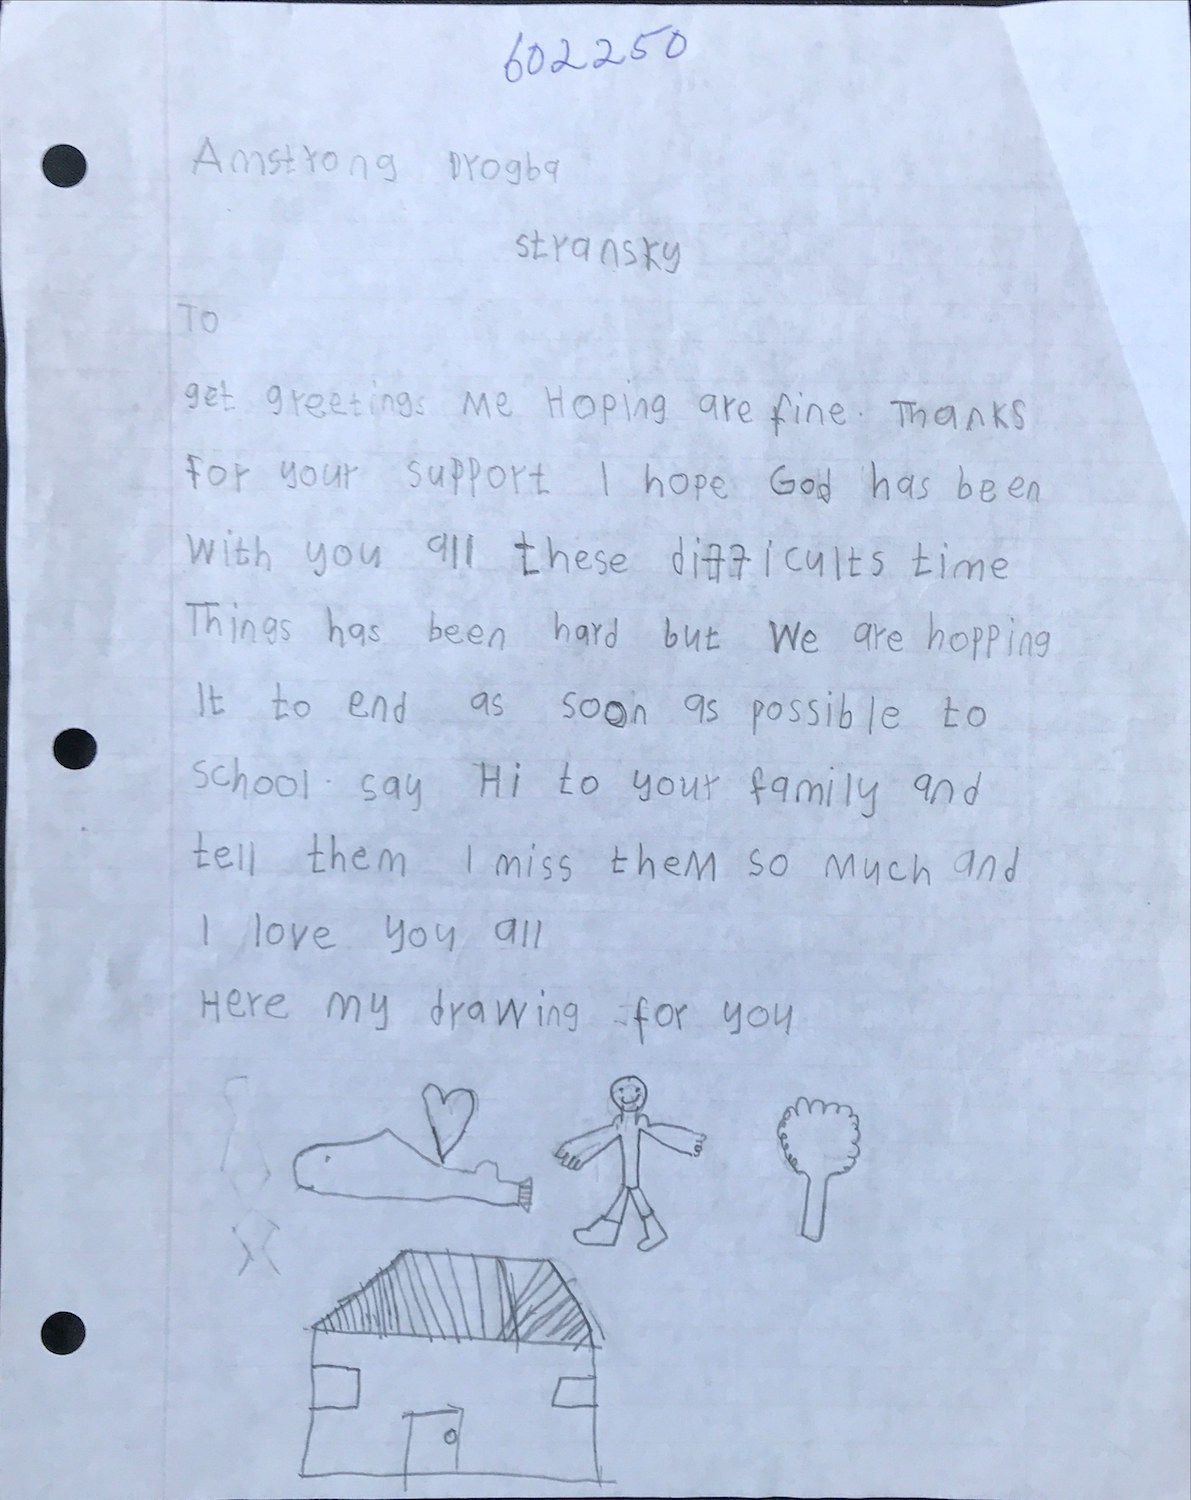 602250
Amstrong Drogba
stransky
To
get greetings me Hoping are fine. Thanks
for your support I hope God has been
with you all these difficults time
Things has been hard but We are hopping
It to end as soon as possible to
school. say Hi to your family and
tell them I miss them so much and
I love you all
Here my drawing for you